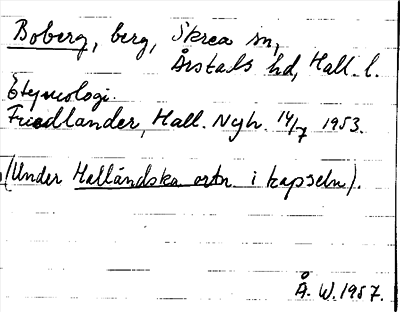 Boberg, berg, Skrea sn,
Årstads hd, Hall. l.
Etymologi.
Friedlander, Hall. Nyh. 14/7 1953.
(Under Halländska ortn i kapseln).
Å. W. 1957.